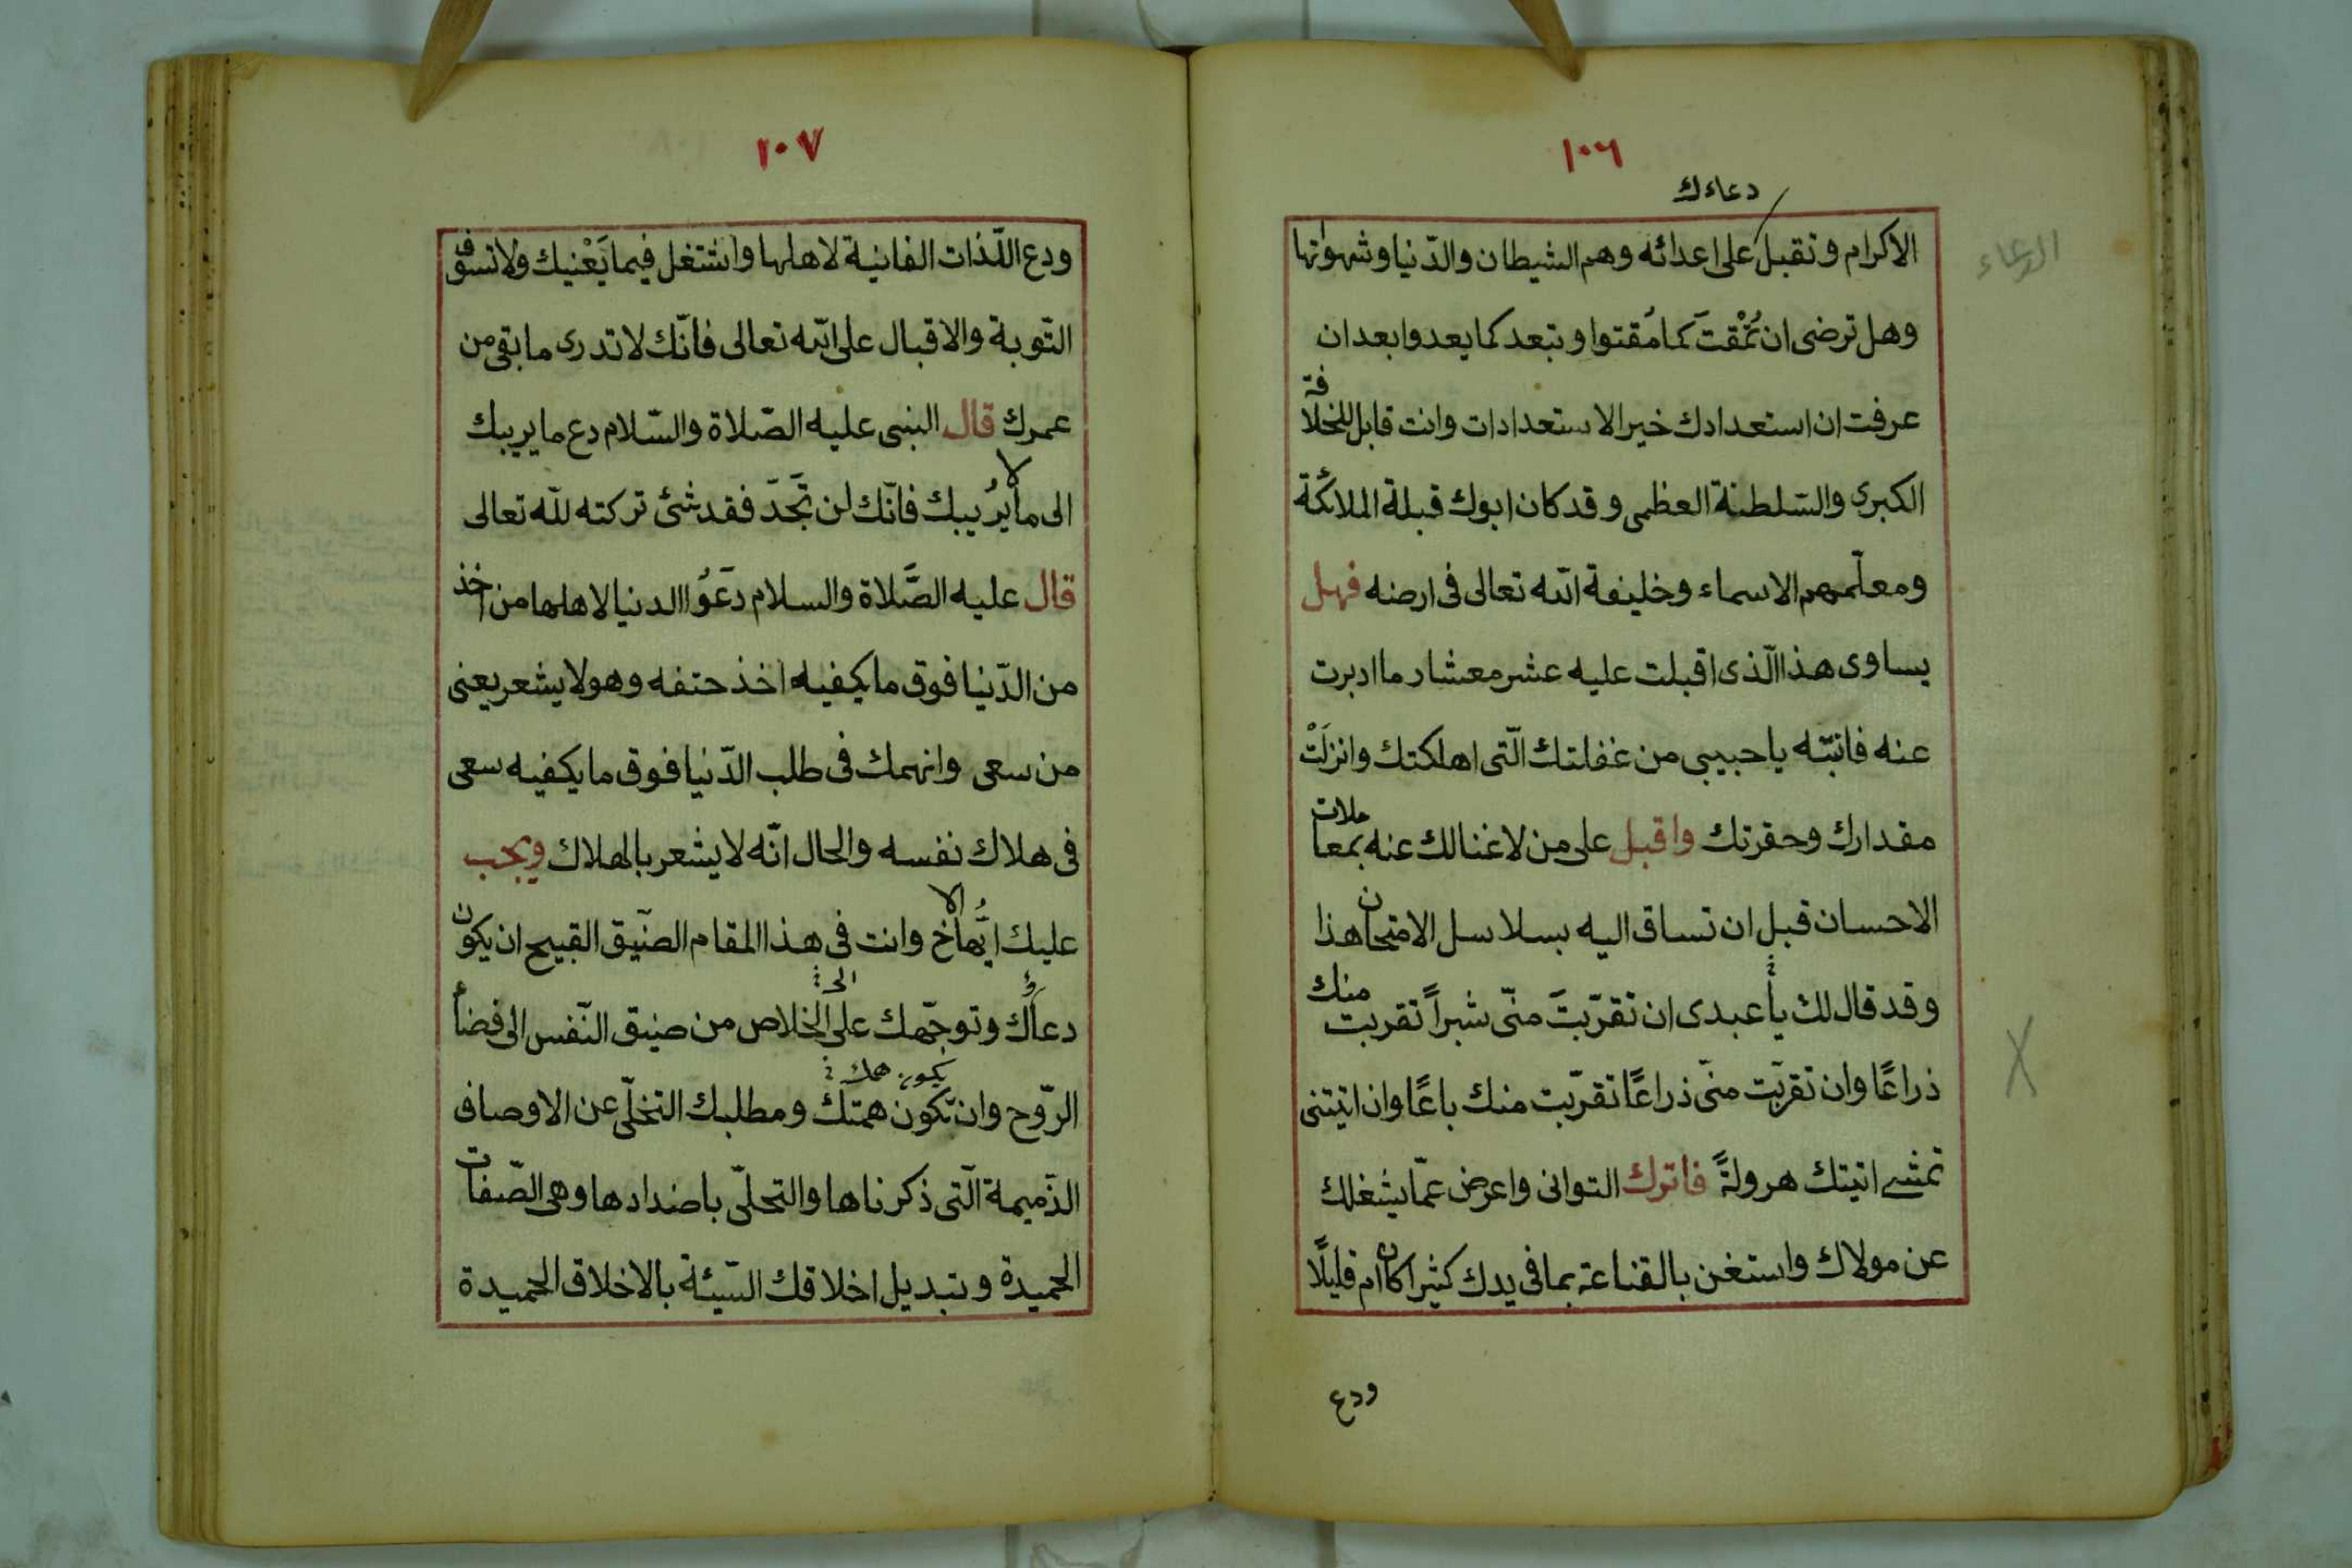 ١٠٦
دعاءك
الاكرام وتقبل على اعدائه وهم الشيطان والدّنيا وشهوتها
وهل ترضى ان تُمْقتَ كما مُقتوا وتبعد كما يعدوا بعد ان
عرفت ان استعدادك خير الاستعدادات وانت قابل للخلافة
الكبرى والسّلطنة العظمى وقد كان ابوك قبلة الملائكة
ومعلّمهم الاسماء وخليفة الله تعالى فى ارضه فهل
يساوى هذا الّذى اقبلت عليه عشر معشار ما ادبرت
عنه فانبّه يا حبيبى من غفلتك الّتى اهلكتك وانزلَتْ
مقدارك وحقرتك واقبل على من لا غنا لك عنه بمعاملات
الاحسان قبل ان تساق اليه بسلاسل الامتحان هذا
وقد قال لك يا عبدى ان تقرّبتَ منّى شبراً تقربت منك
ذراعًا وان تقربّت منّى ذراعًا تقرّبت منك باعًا وان اتيتنى
تمشى اتيتك هرولةً فاترك التوانى واعرض عمّا يشغلك
عن مولاك واستغن بالقناعة بما فى يدك كثيرا كان ام قليلًا
ودع
الدعاء
١٠٧
ودع اللّذات الفانية لاهلها واشتغل فيما يَعْنيك ولا تسوّف
التّوبة والاقبال على الله تعالى فانّك لا تدرى ما بقى من
عمرك قال النبى عليه الصّلاة والسّلام دع ما يريبك
الى ما لا يُريبك فانّك لن تَجَدّ فقد شئ تركته للّه تعالى
قال عليه الصَّلاة والسلام دَعَوُا الدنيا لاهلها من اخذ
من الدّنيا فوق ما يكفيه اخذ حتفه وهو لا يشعر يعنى
من سعى وانهمك فى طلب الدّنيا فوق ما يكفيه سعى
فى هلاك نفسه والحال انّه لا يشعر بالهلاك ويجب
عليك ايُّها الاخ وانت فى هذا المقام الضّيق القبيح ان يكون
دعاؤك وتوجّهك على الى الخلاص من ضيق النّفس الى فضاء
يكون همك
الرّوح وان تكون همتّك ومطلبك التخلّى عن الاوصاف
الذّميمة الّتى ذكرناها والتحلّى باضدادها وهى الصّفات
الحميدة وتبديل اخلاقك السّيئة بالاخلاق الحميدة